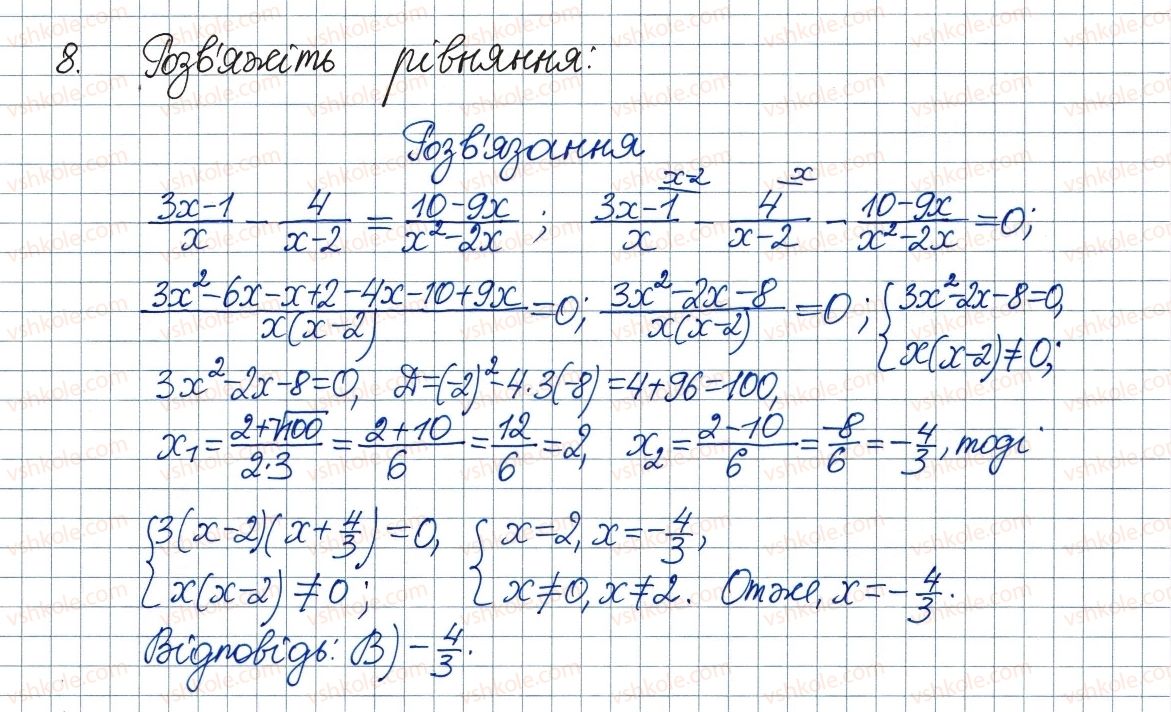 8. Розв'яжіть рівняння:
Розв'язання
(3x-1)/x - 4/(x-2) = (10-9x)/(x²-2x) ; (3x-1)/x ^(x-2) - 4/(x-2) ^x - (10-9x)/(x²-2x) = 0;
(3x²-6x-x+2-4x-10+9x)/(x(x-2)) = 0; (3x²-2x-8)/(x(x-2)) = 0; { 3x²-2x-8=0, x(x-2)≠0;
3x²-2x-8=0, Д=(-2)²-4·3(-8)=4+96=100,
x₁ = (2+√100)/(2·3) = (2+10)/6 = 12/6 = 2, x₂ = (2-10)/6 = -8/6 = -4/3, тоді
{ 3(x-2)(x+4/3)=0, x(x-2)≠0; { x=2, x=-4/3, x≠0, x≠2. Отже, x=-4/3.
Відповідь: В) -4/3.
vshkole.com